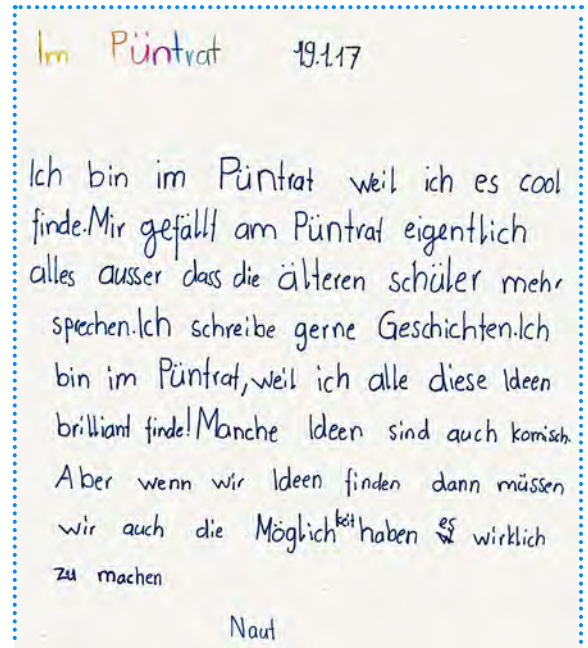 Im Püntrat 19.1.17
Ich bin im Püntrat weil ich es cool
finde. Mir gefällt am Püntrat eigentlich
alles ausser dass die älteren schüler mehr
sprechen. Ich schreibe gerne Geschichten. Ich
bin im Püntrat, weil ich alle diese Ideen
brilliant finde! Manche Ideen sind auch komisch.
Aber wenn wir Ideen finden dann müssen
wir auch die Möglichkeit haben es wirklich
zu machen
Naut